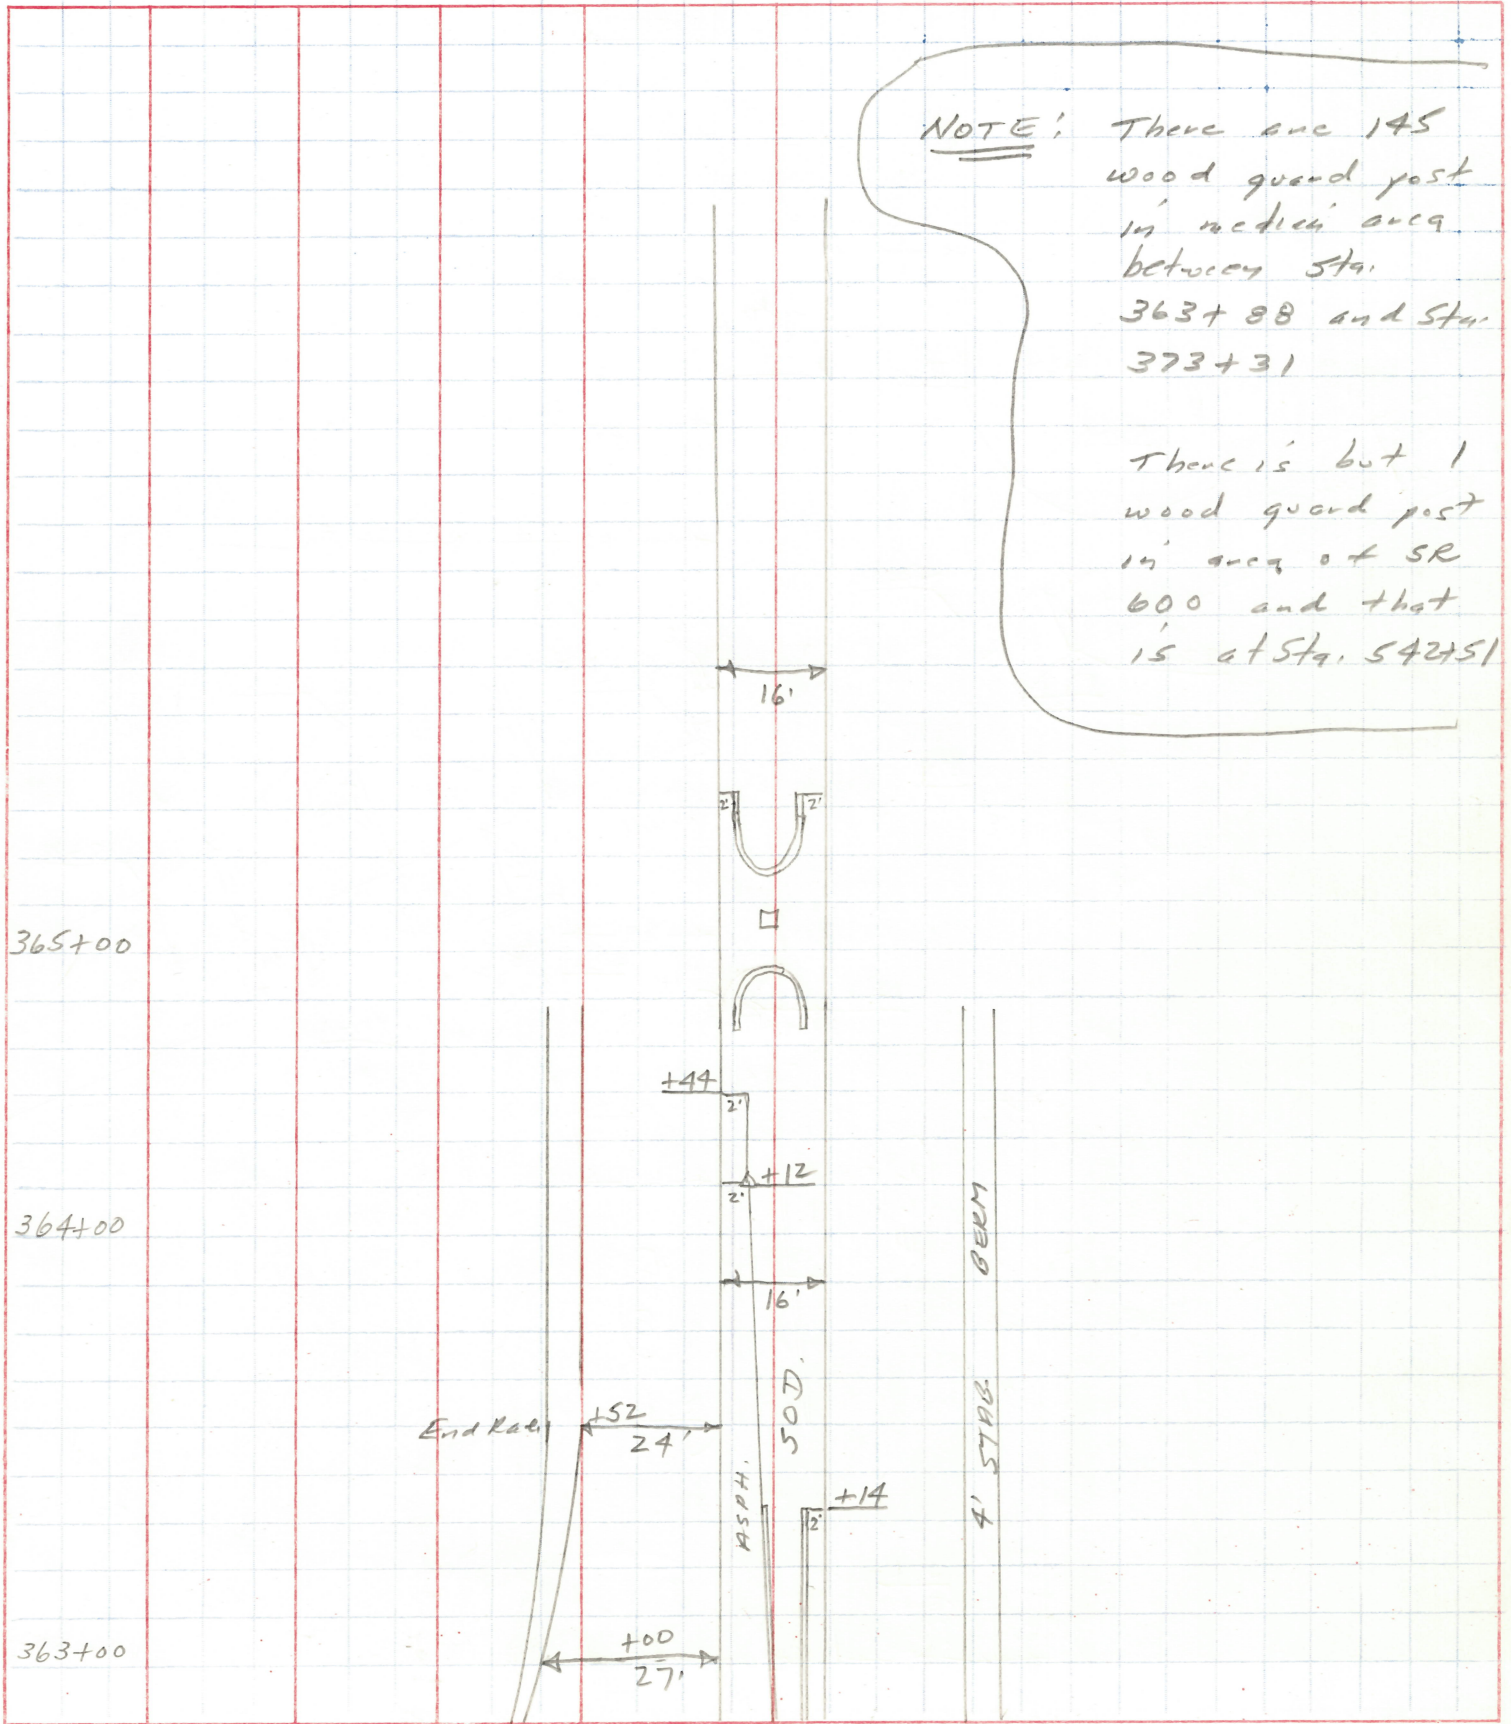 NOTE: There are 145
wood guard post
in median area
between Sta.
363+88 and Sta.
373+31
There is but 1
wood guard post
in area of SR
600 and that
is at Sta. 542+51
16'
2'
2'
365+00
+44
2'
+12
2'
364+00
BERM
16'
SOD.
+52
End Radi
24'
4' STAB.
ASPH.
+14
2'
+00
363+00
27'